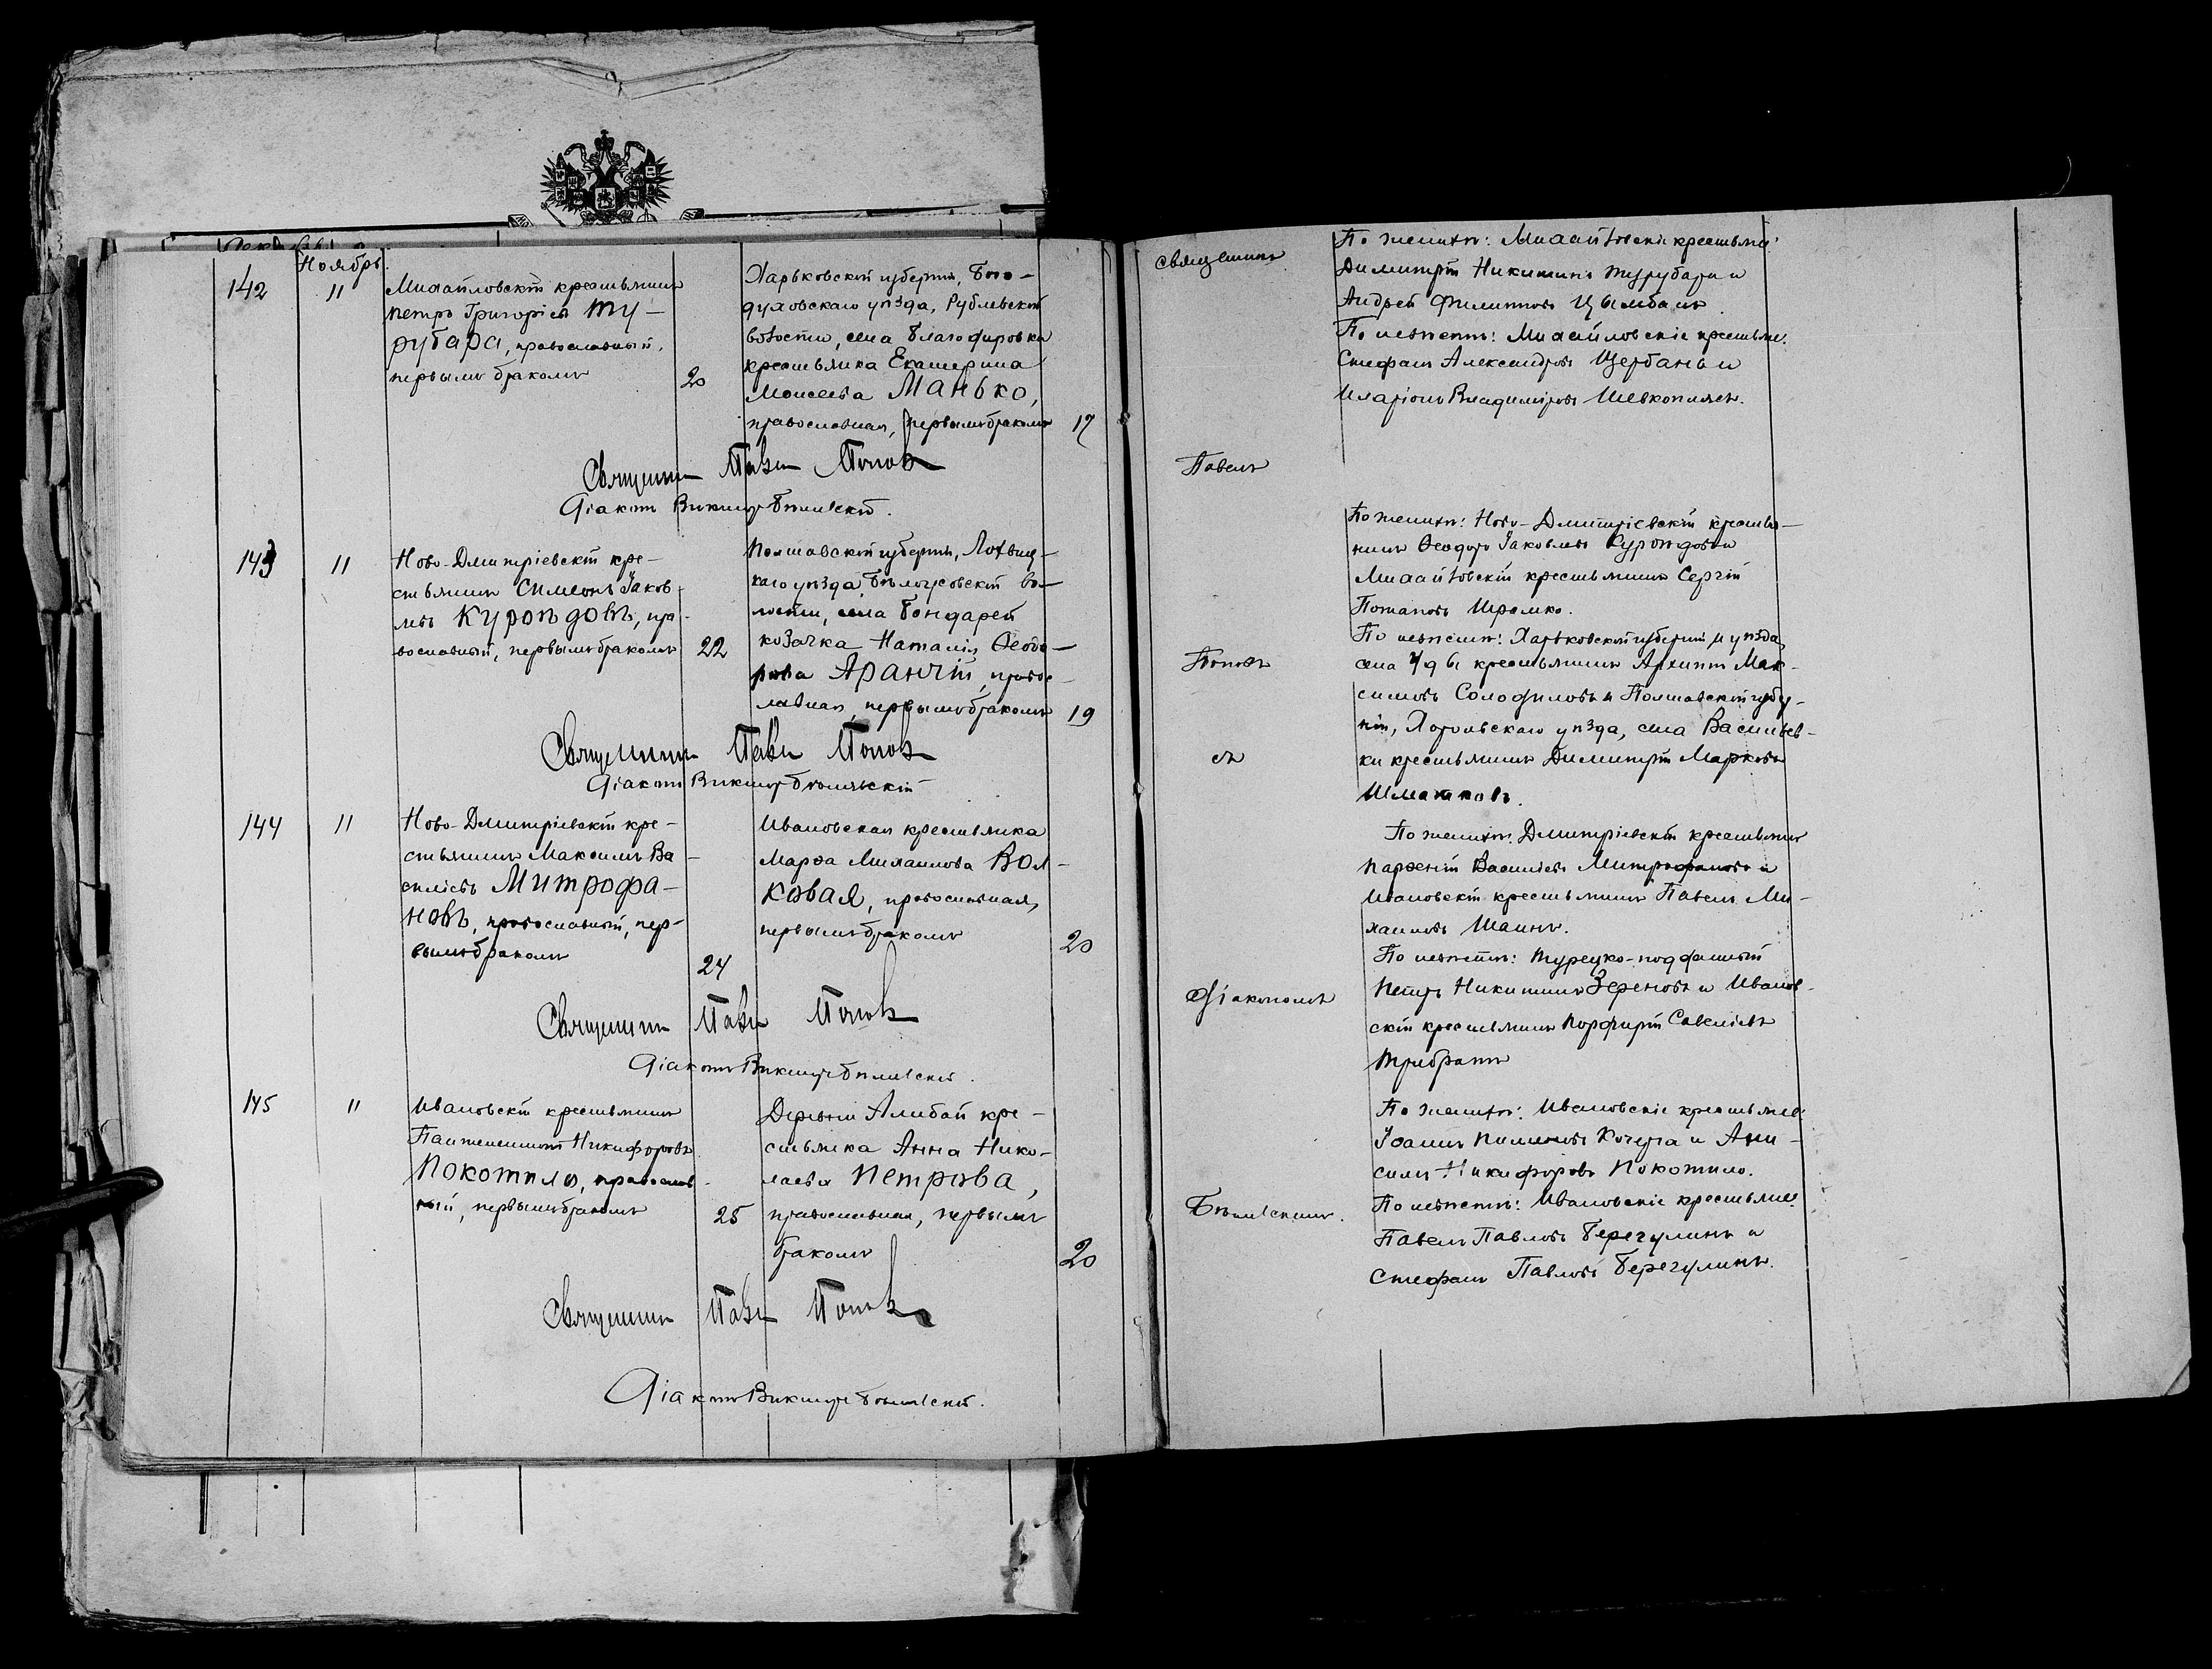 Ноябрь.
142
11
Михайловскій крестьянинъ
Петръ Григоріевъ Ту-
рубара, православный,
первымъ бракомъ
20
Харьковской губерніи, Бого-
духовскаго уѣзда, Рублевской
волости, села
крестьянка Екатерина
Моисеева Манько,
православная, первымъ бракомъ
17
Священникъ Павелъ Поповъ
Діаконъ Викторъ
143
11
Ново-Дмитріевскій кре-
стьянинъ Симеонъ Іаков-
левъ Куроѣдовъ, пра-
вославный, первымъ бракомъ
22
Полтавской губерніи, Лохвиц-
каго уѣзда, Бѣлоусовской во-
лости, села Бондарей
козачка Наталія Ѳеодо-
рова Аранчій, правос-
лавная, первымъ бракомъ
19
Священникъ Павелъ Поповъ
Діаконъ Викторъ
144
11
Ново-Дмитріевскій кре-
стьянинъ Максимъ Ва-
силіевъ Митрофа-
новъ, православный, пер-
вымъ бракомъ
24
Ивановская крестьянка
Марѳа Михаилова Вол-
ковая, православная,
первымъ бракомъ
20
Священникъ Павелъ Поповъ
Діаконъ Викторъ
145
11
Ивановскій крестьянинъ
Пантелеимонъ Никифоровъ
Покотило, православ-
ный, первымъ бракомъ
25
Деревни Алибай кре-
стьянка Анна Нико-
лаева Петрова,
православная, первымъ
бракомъ
20
Священникъ Павелъ Поповъ
Діаконъ Викторъ
священникъ
Павелъ
Поповъ
съ
діакономъ
По женихѣ: Михайловскіе крестьяне
Димитрій Никитинъ Турубара и
Андрей Филипповъ Цымбалъ
По невѣстѣ: Михайловскіе крестьяне
Стефанъ Александровъ Щербань и
Иларіонъ Владиміровъ Шевкоплясъ.
По женихѣ: Ново-Дмитріевскій крестья-
нинъ Ѳеодоръ Іаковлевъ Куроѣдовъ и
Михайловскій крестьянинъ Сергій
Потаповъ Шрамко.
По невѣстѣ: Харьковской губерніи и уѣзда,
села Уды крестьянинъ Архипъ Мак-
симовъ Солодиловъ и Полтавской губер-
ніи, Хорольскаго уѣзда, села Васильев-
ки крестьянинъ Димитрій Марковъ
Шмаковъ.
По женихѣ: Дмитріевскій крестьянинъ
Парѳеній Василіевъ Митрофановъ и
Ивановскій крестьянинъ Павелъ Ми-
хаиловъ Шаинъ.
По невѣстѣ: Турецко-подданный
Петръ Никитинъ Зереновъ и Иванов-
скій крестьянинъ Порфирій Савеліевъ
Трибратъ
По женихѣ: Ивановскіе крестьяне
Іоаннъ Пименовъ Кочура и Ани-
симъ Никифоровъ Покотило.
По невѣстѣ: Ивановскіе крестьяне
Павелъ Павловъ Берегулинъ и
Стефанъ Павловъ Берегулинъ.